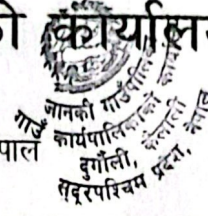 को कार्यालय
जानकी गाउँपालिका
गाउँ कार्यपालिकाको कार्यालय
पाल
दुर्गौली, कैलाली
सुदूरपश्चिम प्रदेश, नेपाल